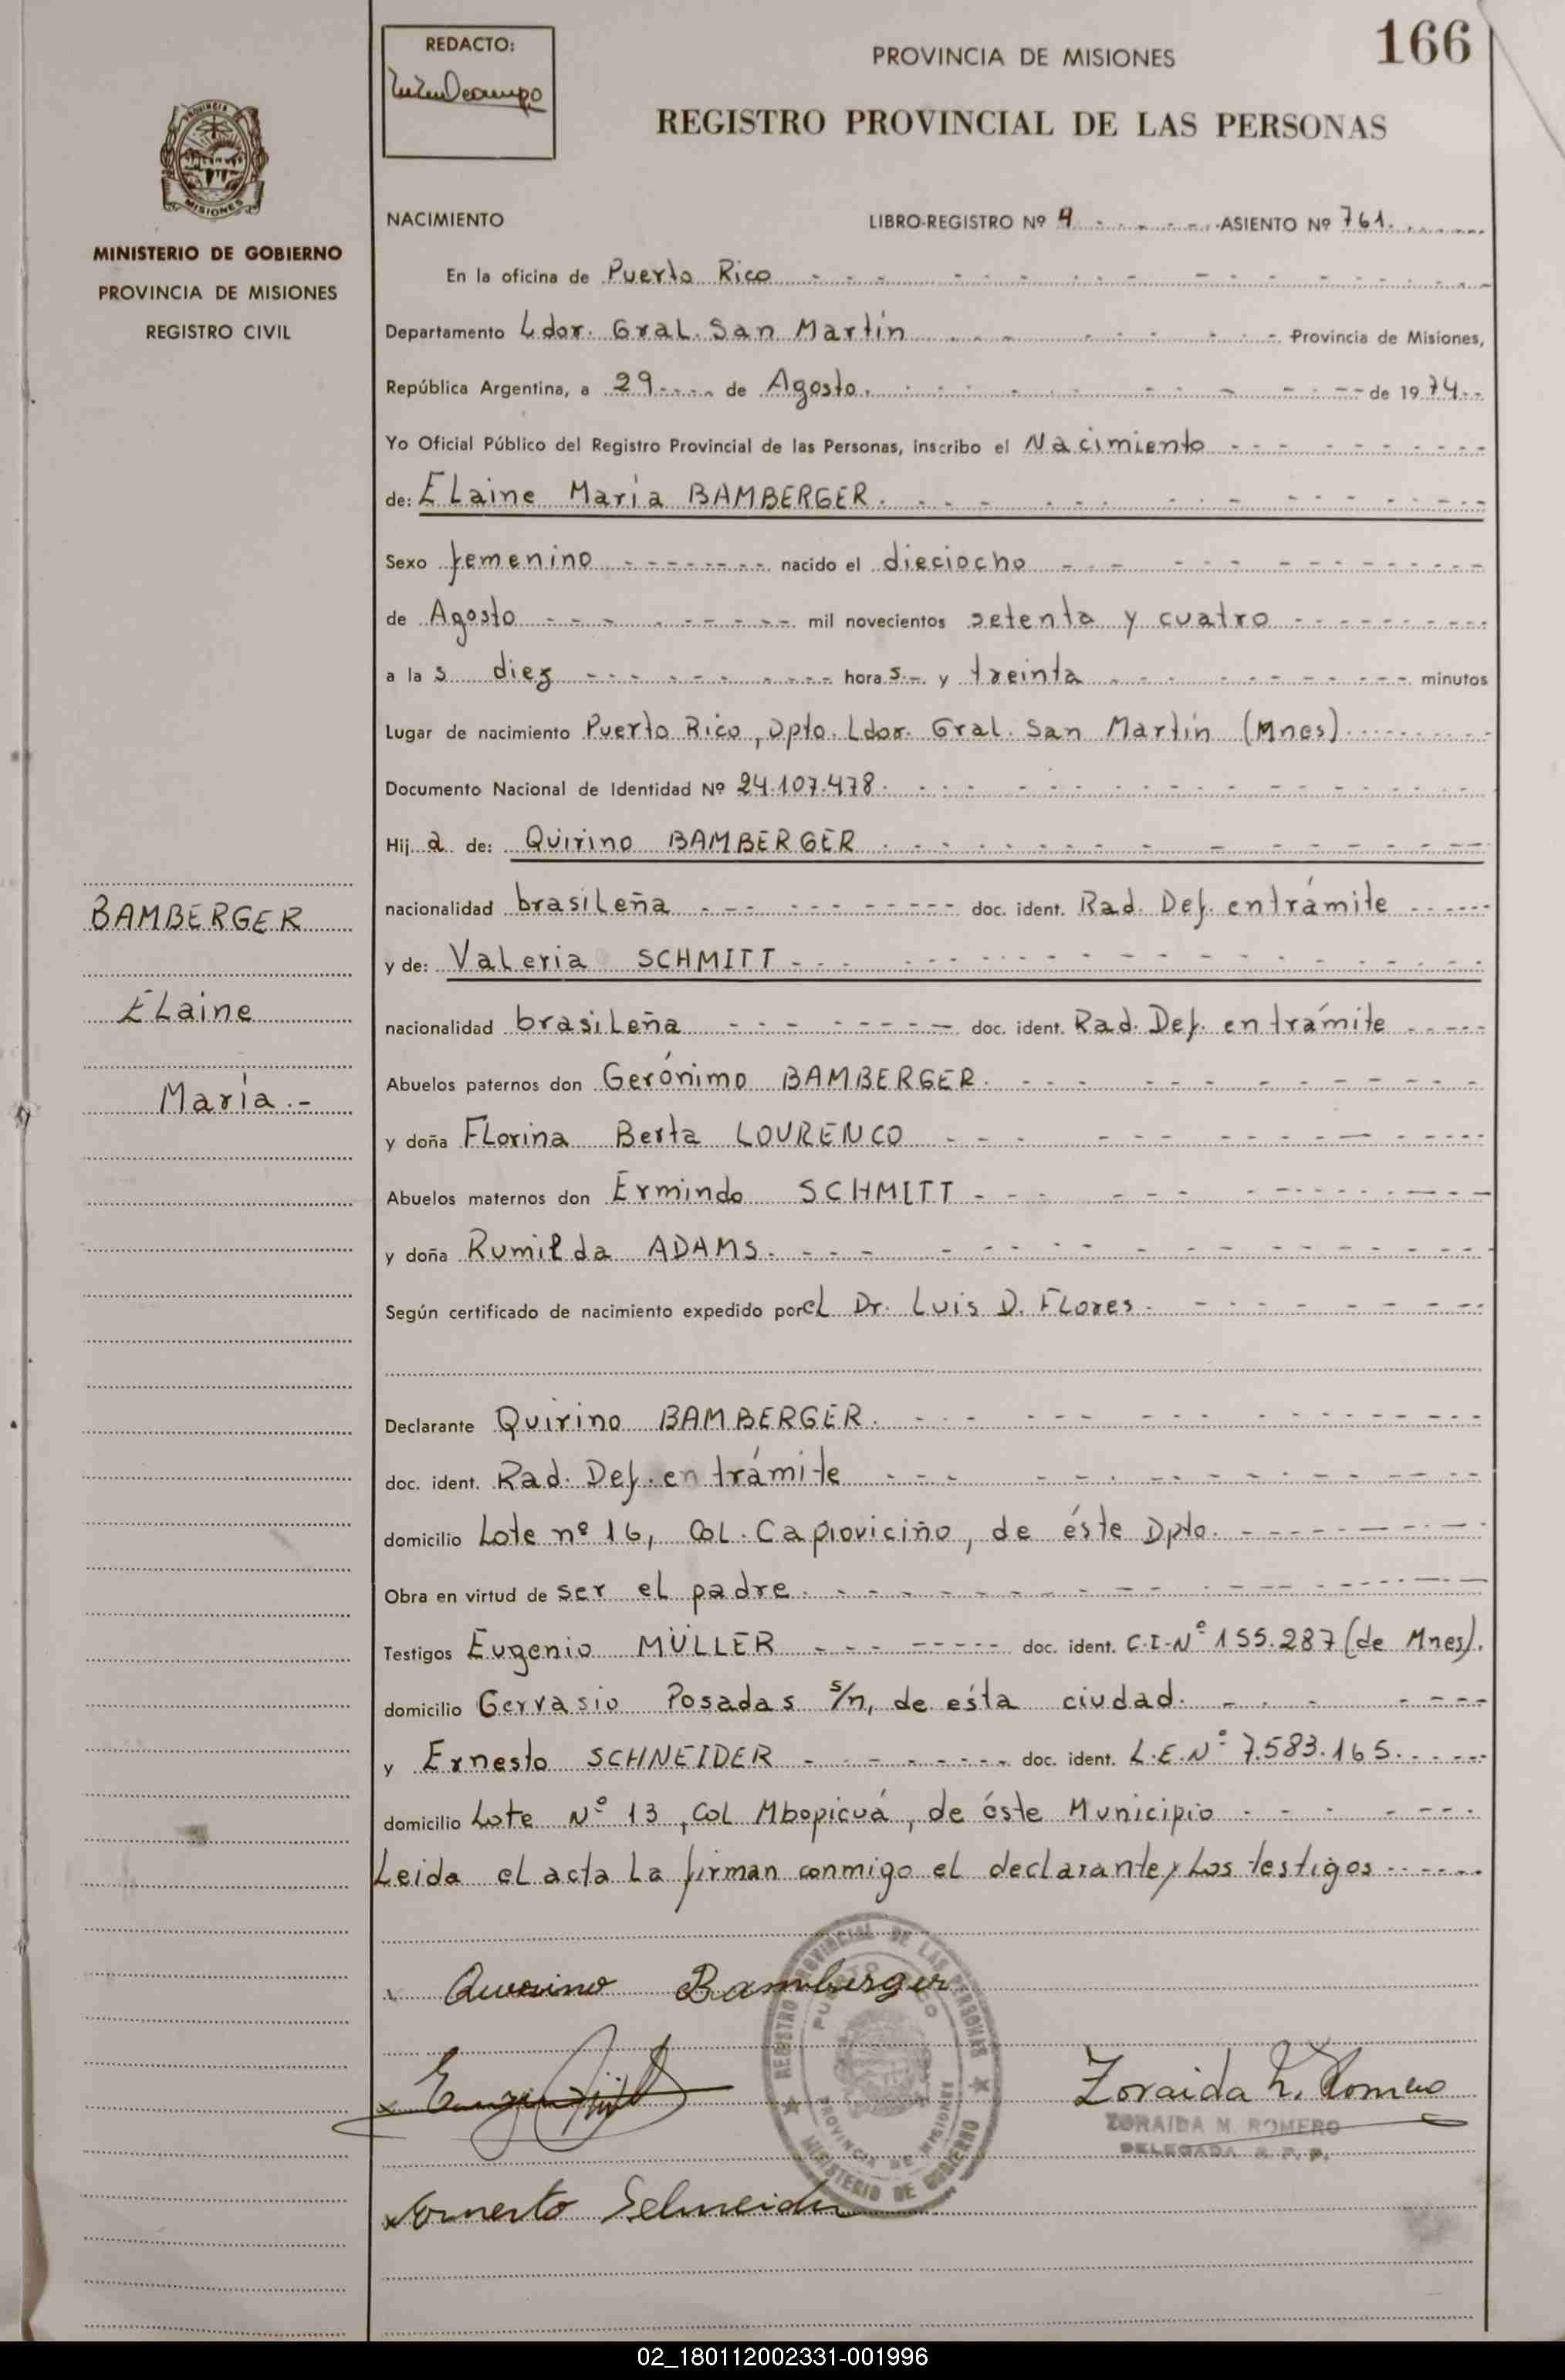 166
REDACTO:
PROVINCIA DE MISIONES
REGISTRO PROVINCIAL DE LAS PERSONAS
MISIONES
MINISTERIO DE GOBIERNO
PROVINCIA DE MISIONES
REGISTRO CIVIL
NACIMIENTO LIBRO-REGISTRO Nº 4 ASIENTO Nº 761.
En la oficina de Puerto Rico
Departamento Ldor. Gral. San Martín Provincia de Misiones,
República Argentina, a 29 de Agosto. de 1974
Yo Oficial Público del Registro Provincial de las Personas, inscribo el Nacimiento
de: Elaine María BAMBERGER.
Sexo femenino nacido el dieciocho
de Agosto mil novecientos setenta y cuatro
a las diez horas y treinta minutos
Lugar de nacimiento Puerto Rico, Dpto. Ldor. Gral. San Martín (Mnes)
Documento Nacional de Identidad Nº 24.107.478.
Hija de: Quirino BAMBERGER
nacionalidad brasileña doc. ident. Rad. Def. en trámite
y de: Valeria SCHMITT
nacionalidad brasileña doc. ident. Rad. Def. en trámite
Abuelos paternos don Gerónimo BAMBERGER.
y doña Florina Berta LOURENCO
Abuelos maternos don Ermindo SCHMITT
y doña Rumilda ADAMS.
Según certificado de nacimiento expedido por el Dr. Luis D. Flores.
Declarante Quirino BAMBERGER.
doc. ident. Rad. Def. en trámite
domicilio Lote nº 16, Col. Capioviciño, de éste Dpto.
Obra en virtud de ser el padre.
Testigos Eugenio MÜLLER doc. ident. C.I.Nº 155.287 (de Mnes).
domicilio Gervasio Posadas s/n, de ésta ciudad.
y Ernesto SCHNEIDER doc. ident. L.E.Nº 7.583.165.
domicilio Lote Nº 13, Col Mbopicuá, de éste Municipio
Leida el acta la firman conmigo el declarante y los testigos
BAMBERGER
Elaine
María.-
Quirino Bamberger
REGISTRO PROVINCIAL DE LAS PERSONAS
PUERTO RICO
PROVINCIA DE MISIONES
MINISTERIO DE GOBIERNO
Zoraida M. Romero
ZORAIDA M. ROMERO
DELEGADA R. P. P.
Ernesto Schneider
02_180112002331-001996